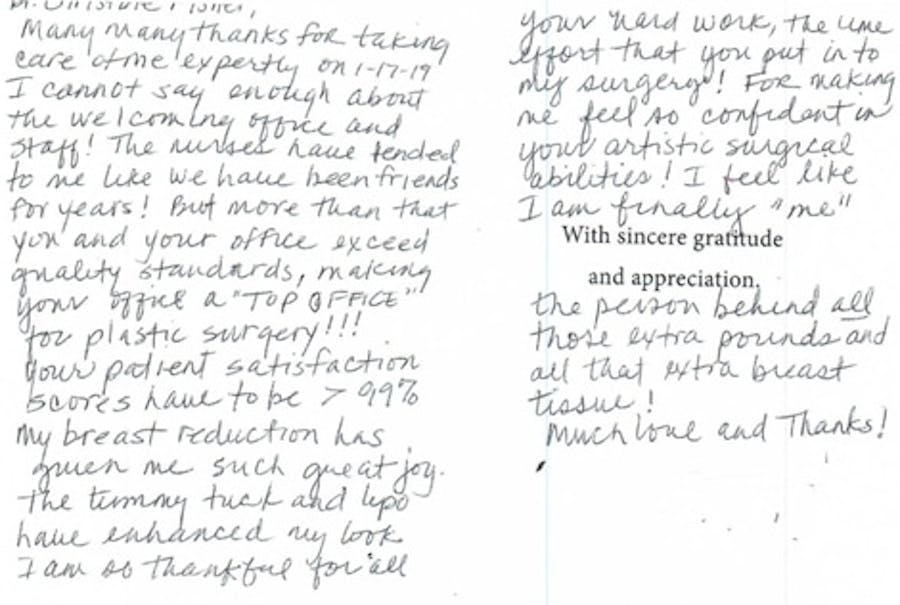 Many many thanks for taking
care of me expertly on 1-17-19
I cannot say enough about
the welcoming office and
staff! The nurses have tended
to me like we have been friends
for years! But more than that
you and your office exceed
quality standards, making
your office a "TOP OFFICE"
for plastic surgery!!!
Your patient satisfaction
scores have to be > 99%
My breast reduction has
given me such great joy.
The tummy tuck and lipo
have enhanced my look.
I am so thankful for all
your hard work, the time
effort that you put in to
my surgery! For making
me feel so confident in
your artistic surgical
abilities! I feel like
I am finally "me"
With sincere gratitude
and appreciation.
the person behind all
those extra pounds and
all that extra breast
tissue!
Much love and Thanks!